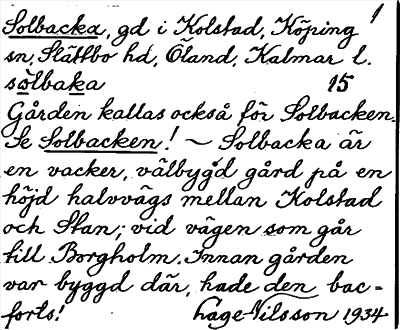 1
Solbacka, gd i Kolstad, Köping
sn, Slättbo hd, Öland, Kalmar l.
sòlbaka 15
Gården kallas också för Solbacken.
Se Solbacken! ~ Solbacka är
en vacker, välbygd gård på en
höjd halvvägs mellan Kolstad
och Stan; vid vägen som går
till Borgholm. Innan gården
var byggd där, hade den bac=
forts! Lage Nilsson 1934